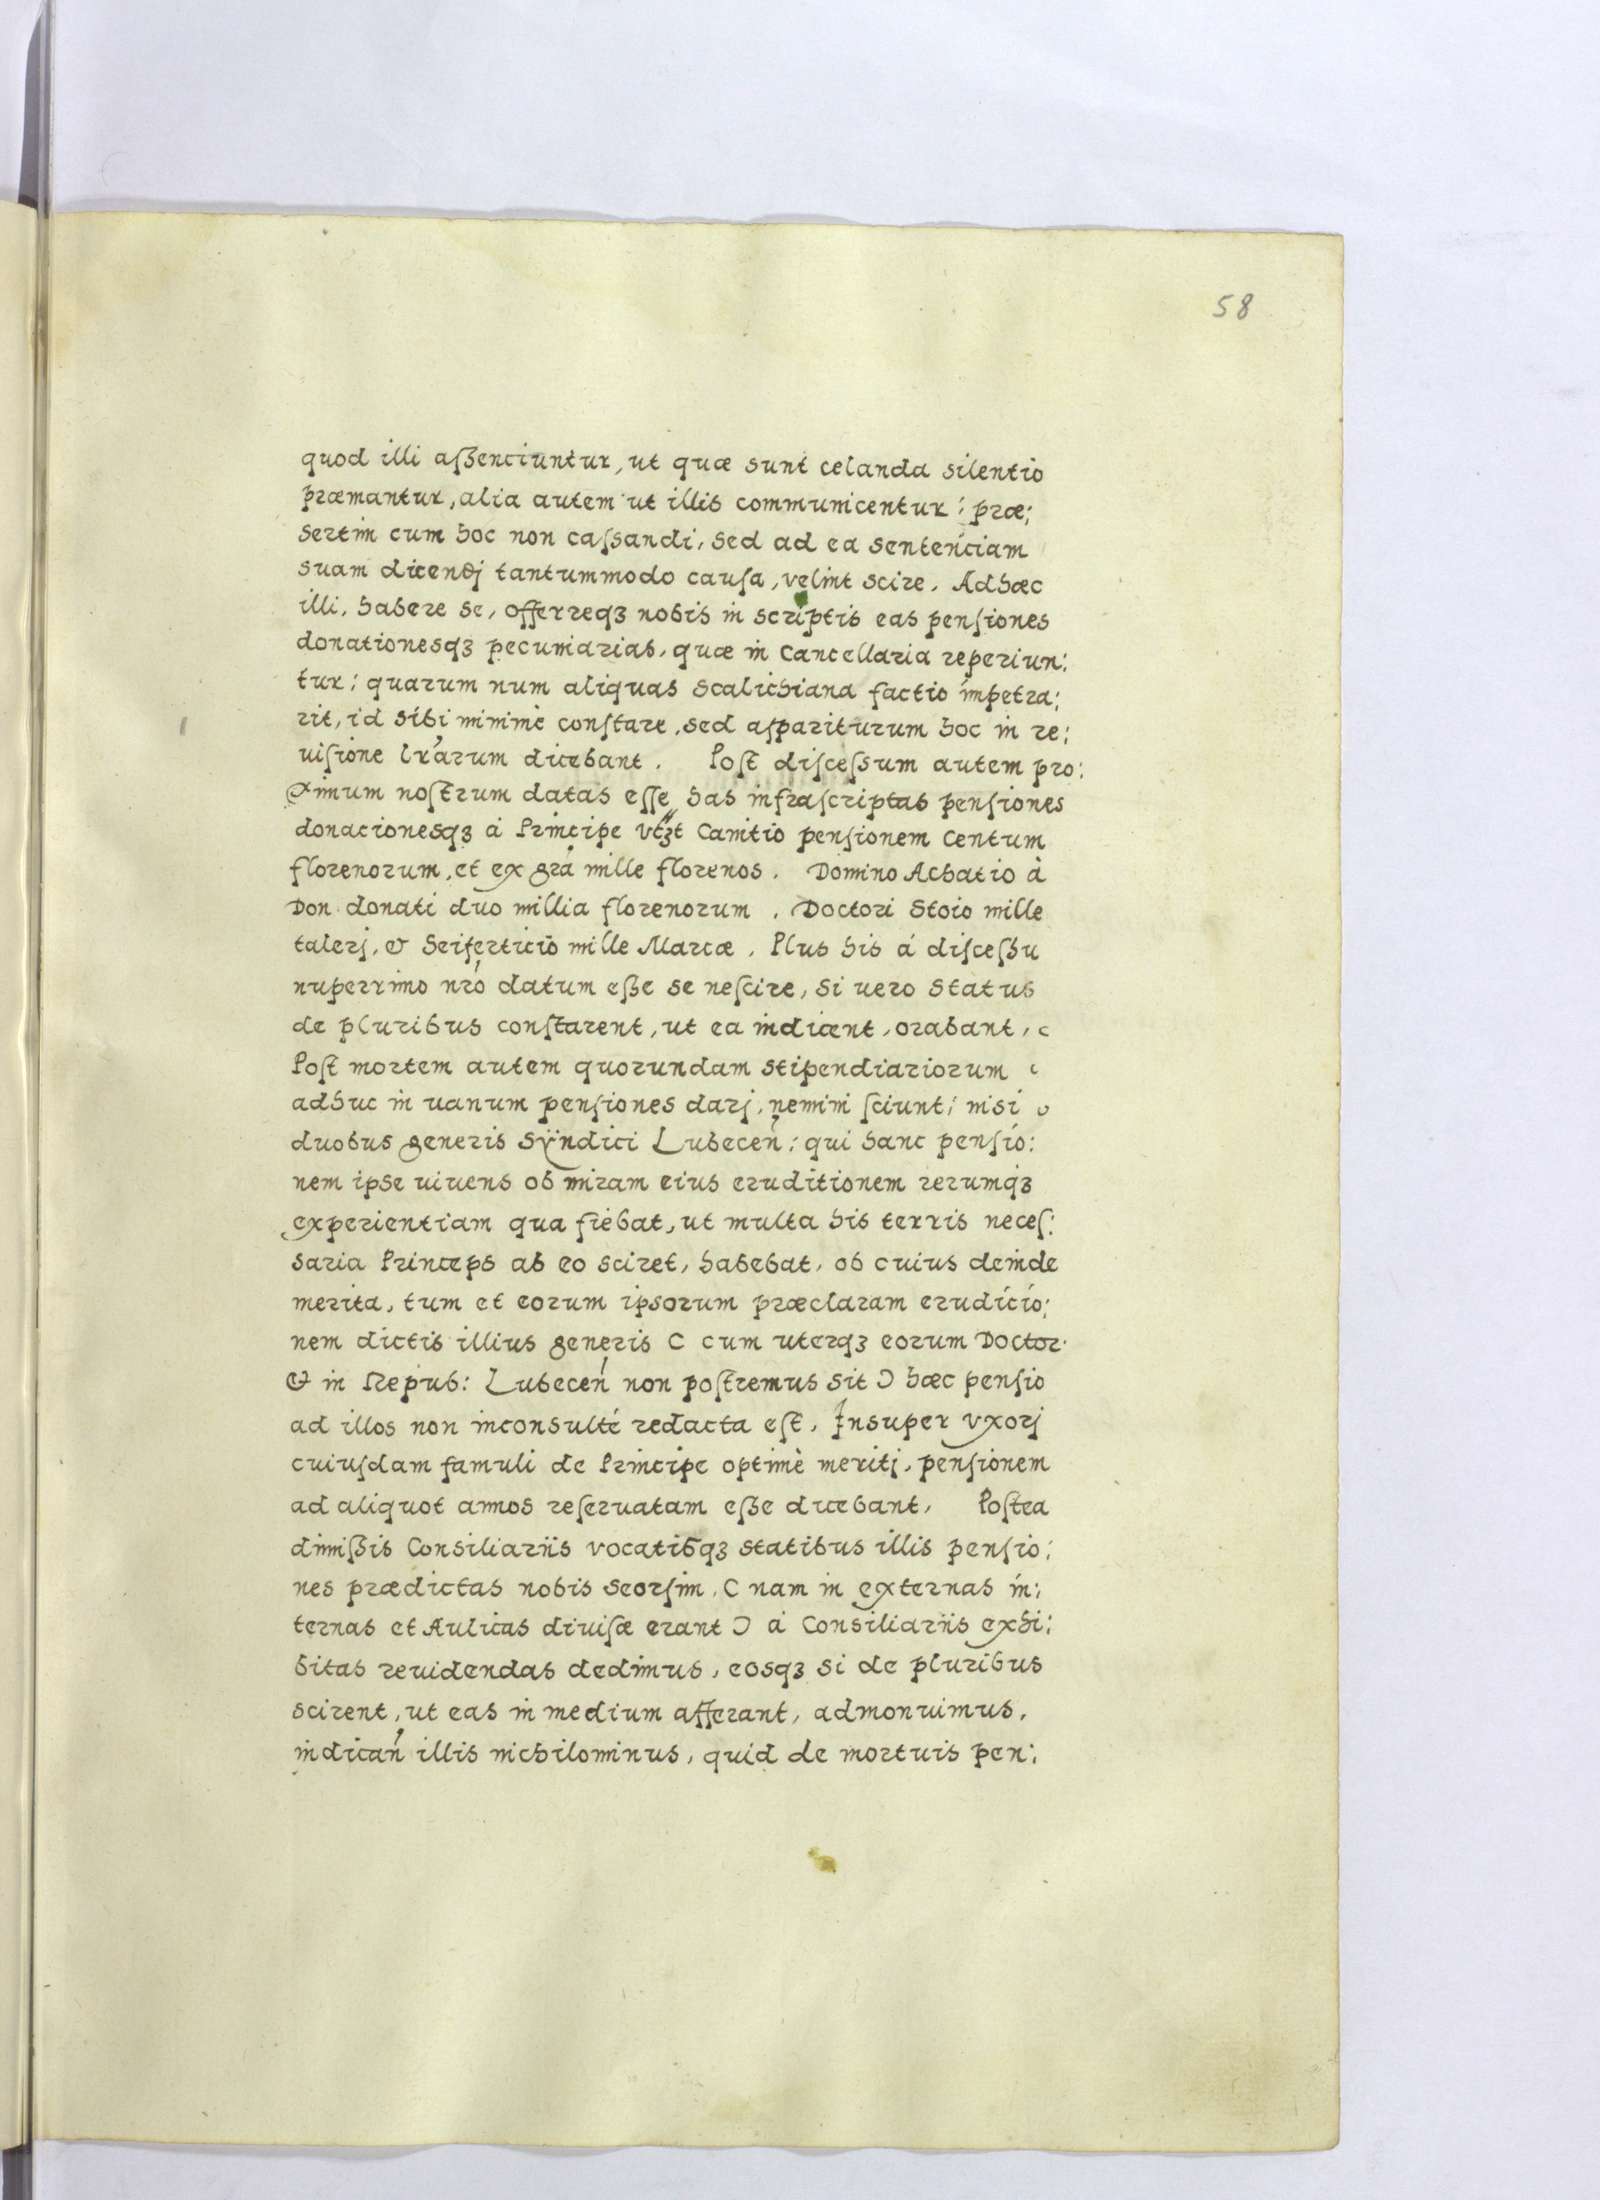 58
quod illi aſsenciuntur, ut quæ sunt celanda silentio
præmantur, alia autem ut illis communicentur: præ:
sertim cum hoc non caſsandi, sed ad ea sentenciam
suam dicendj tantummodo cauſa, velint scire. Adhæc
illi, habere se, offerreqꝫ nobis in scriptis eas penſiones
donationesqꝫ pecuniarias, quæ in Cancellaria reperiun:
tur: quarum num aliquas Scalichiana factio impetra:
rit, id sibi minimè conſtare, sed aſpariturum hoc in re:
uiſione lr̃arum dicebant. Poſt diſceſsum autem pro:
ximum noſtrum datas eſſe has infraſcriptas penſiones
donacionesqꝫ á Principe vꝫt Canitio penſionem Centum
florenorum, et ex gr̃a mille florenos. Domino Achatio à
Don donati duo millia florenorum. Doctori Stoio mille
talerj, & Seiferticio mille Marcæ. Plus his á diſceſsu
nuperrimo nr̃o datum eſse se neſcire, si uero Status
de pluribus conſtarent, ut ea indicent, orabant,
Poſt mortem autem quorundam stipendiariorum
adhuc in uanum penſiones darj, nemini ſciunt; nisi
duobus generis Sÿndici Lubecen̄: qui hanc penſio:
nem ipse uiuens ob miram eius eruditionem rerumqꝫ
experientiam qua fiebat, ut multa his terris neceſ:
saria Princeps ab eo sciret, habebat, ob cuius deinde
merita, tum et eorum ipsorum præclaram erudicio:
nem dictis illius generis C cum uterqꝫ eorum Doctor
& in Repub: Lubecen̄ non poſtremus sit Ɔ hæc penſio
ad illos non inconsulté redacta eſt. Insuper vxorj
cuiuſdam famuli de Principe optimè meritj, penſionem
ad aliquot annos reſeruatam eſse dicebant, Poſtea
dimiſsis Consiliariis vocatisqꝫ statibus illis penſio:
nes prædictas nobis seorſim, C nam in externas in:
ternas et Aulicas diuiſæ erant Ɔ á Consiliariis exhi:
bitas reuidendas dedimus, eosqꝫ si de pluribus
scirent, ut eas in medium afferant, admonuimus,
indican̄ illis nichilominus, quid de mortuis pen: